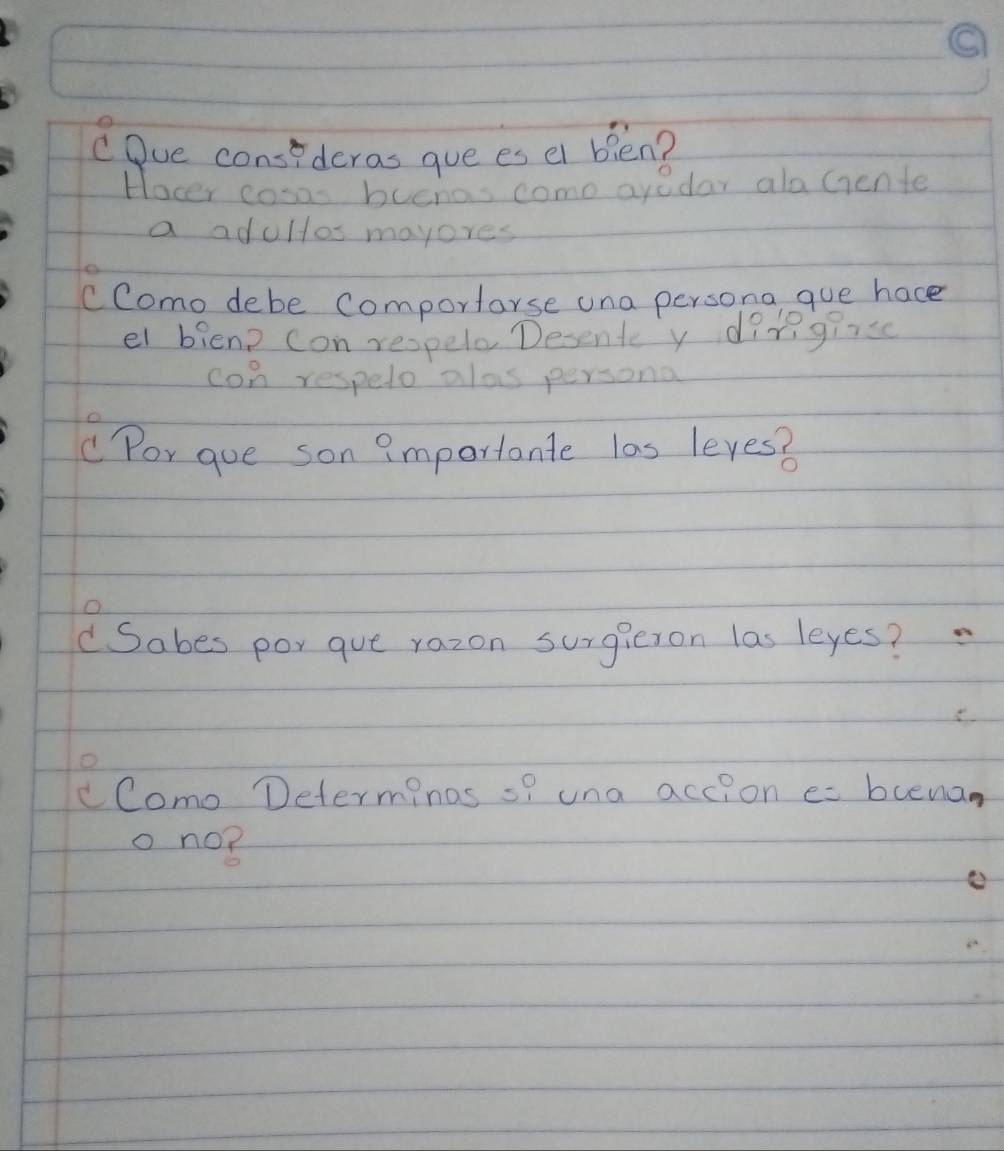 ¿Que consideras que es el bien?
Hacer cosas buenas como ayudar ala Gente
a adultos mayores
¿Como debe Comportarse una persona que hace
el bien? Con respeto Desente y dirigirse
con respeto alas persona
¿Por que son importante las leyes?
¿Sabes por que razon surgieron las leyes?
¿Como Determinas si una accion es buena
o no?